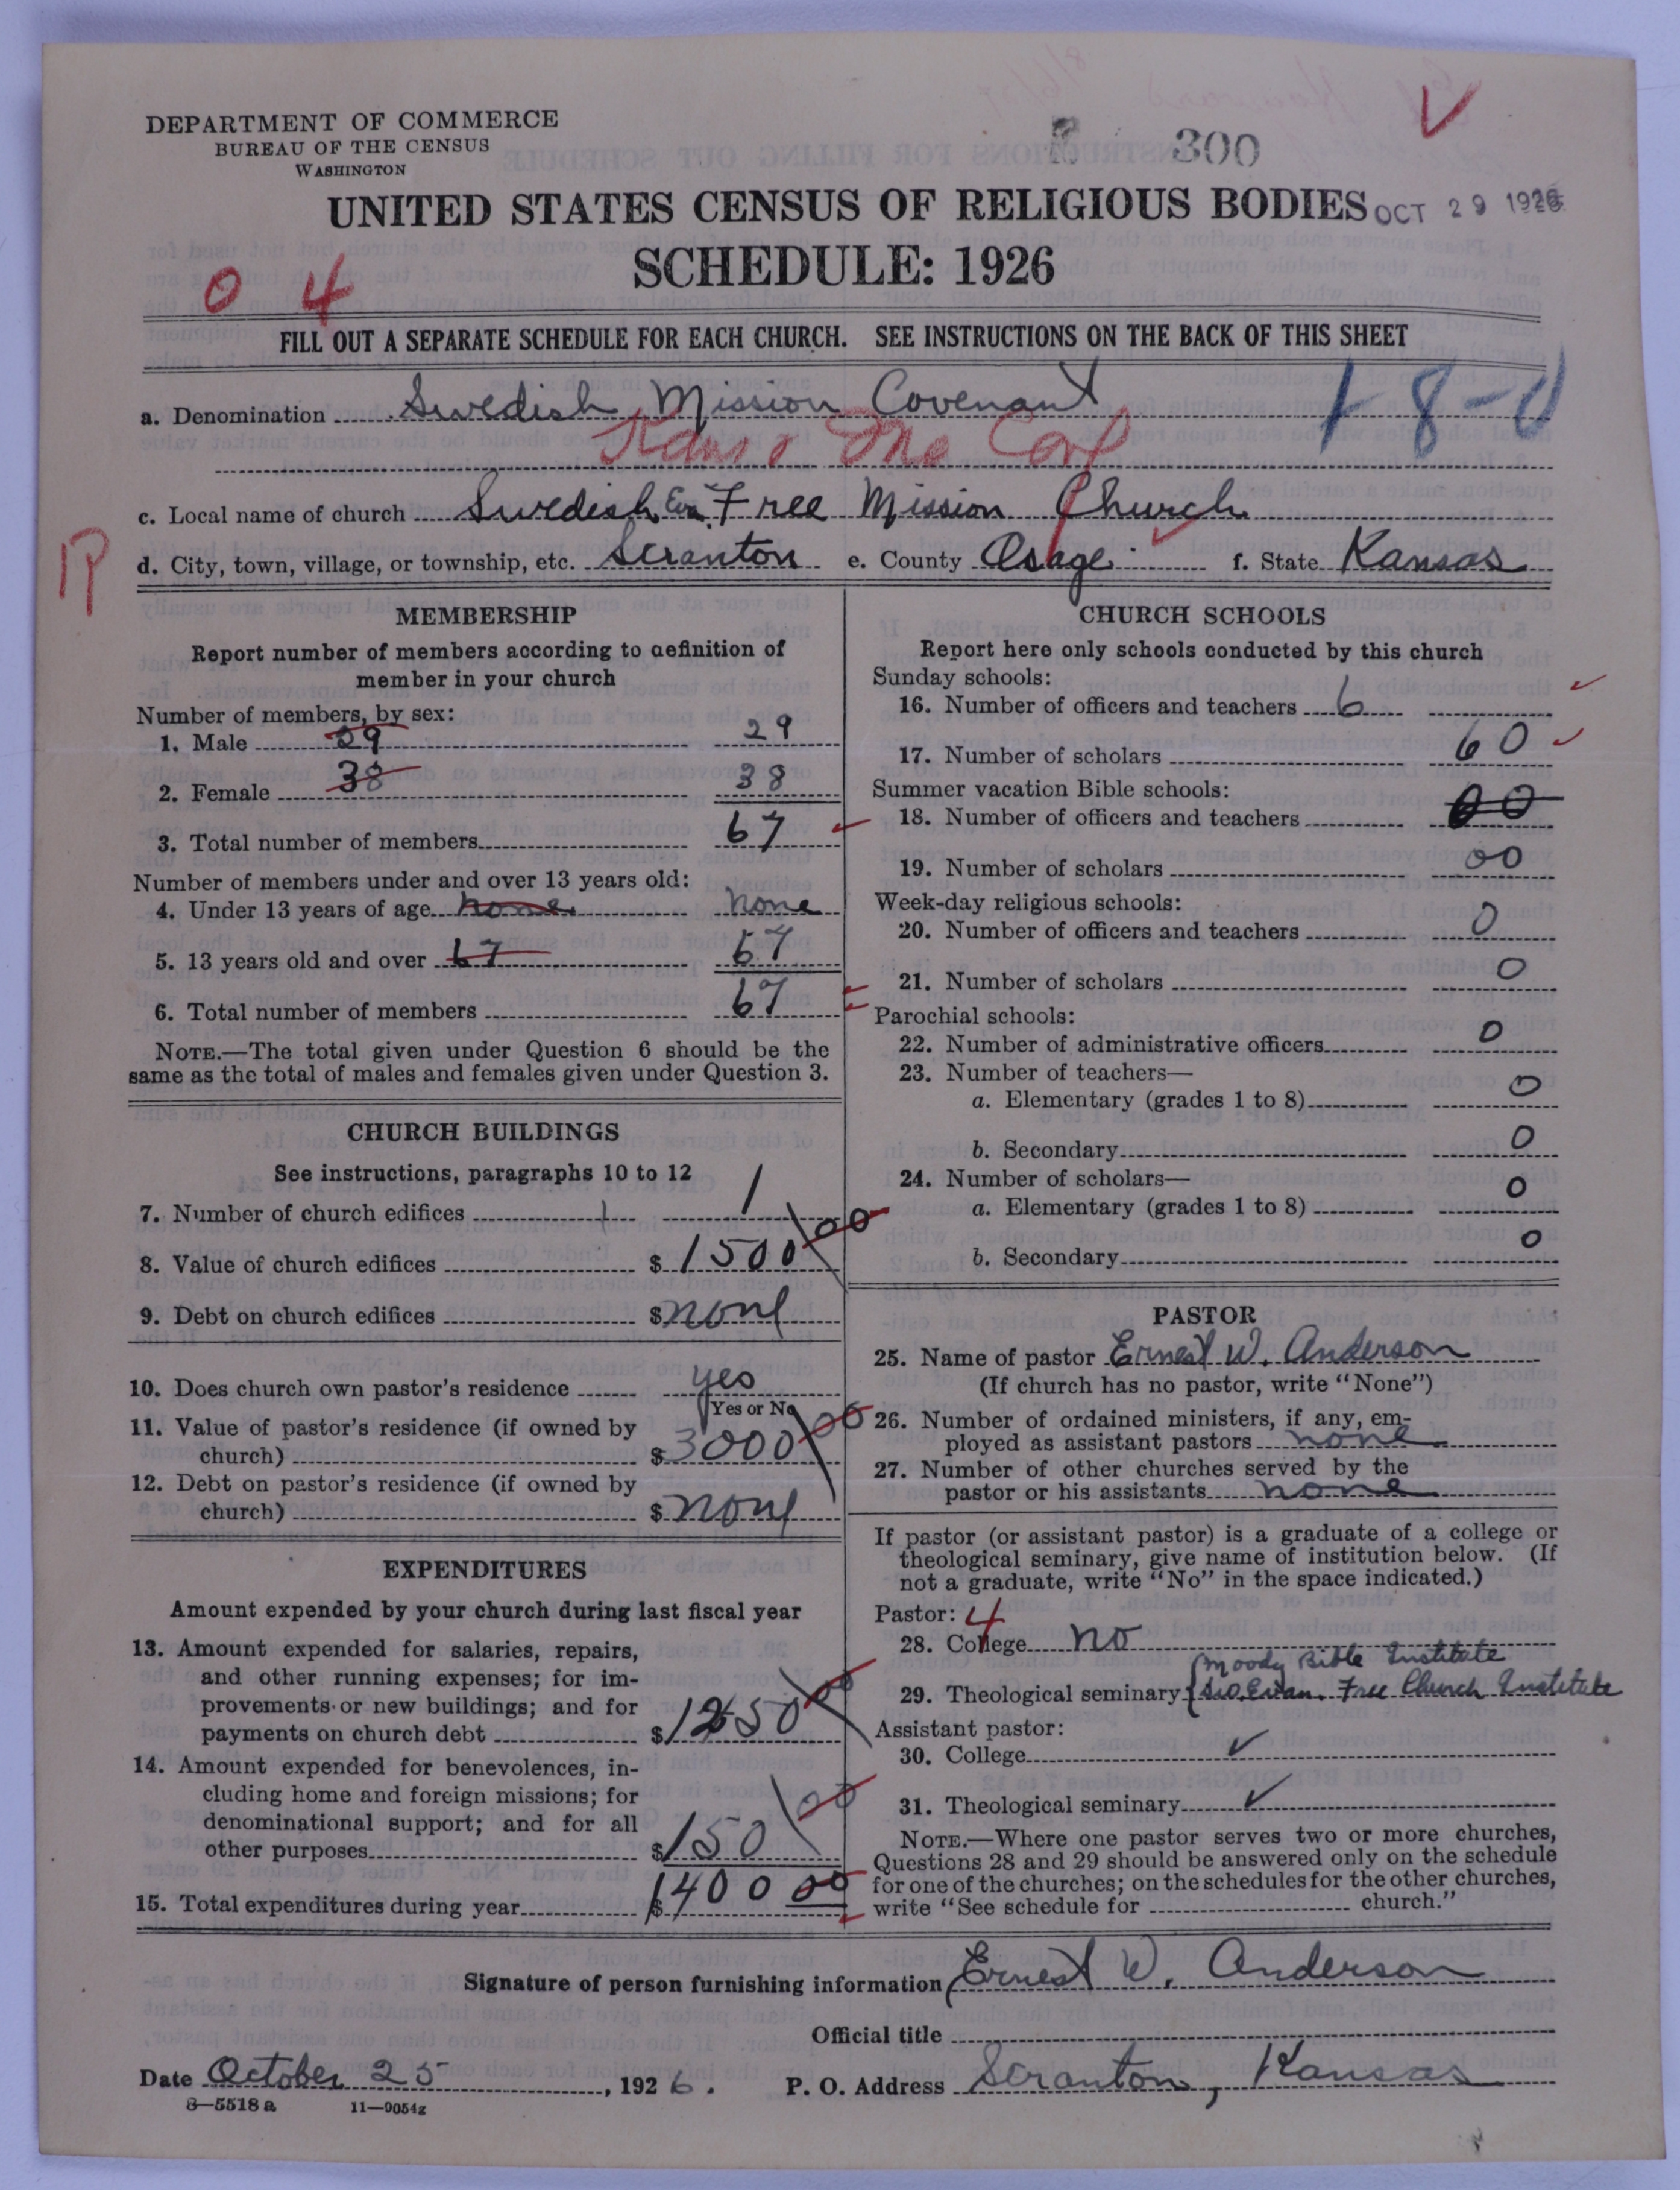 DEPARTMENT OF COMMERCE
BUREAU OF THE CENSUS
WASHINGTON
300
UNITED STATES CENSUS OF RELIGIOUS BODIES
OCT 29 1926
SCHEDULE: 1926
0 4
FILL OUT A SEPARATE SCHEDULE FOR EACH CHURCH. SEE INSTRUCTIONS ON THE BACK OF THIS SHEET
a. Denomination Swedish Mission Covenant
1-8-0
c. Local name of church Swedish Eva. Free Mission Church
d. City, town, village, or township, etc. Scranton e. County Osage f. State Kansas
MEMBERSHIP
Report number of members according to definition of
member in your church
Number of members, by sex:
1. Male 29 29
2. Female 38 38
3. Total number of members 67
Number of members under and over 13 years old:
4. Under 13 years of age none none
5. 13 years old and over 67 67
6. Total number of members 67
NOTE.—The total given under Question 6 should be the
same as the total of males and females given under Question 3.
CHURCH BUILDINGS
See instructions, paragraphs 10 to 12
7. Number of church edifices 1 1
8. Value of church edifices $ 1500 00
9. Debt on church edifices $ none
10. Does church own pastor's residence yes
Yes or No
11. Value of pastor's residence (if owned by
church) $ 3000 00
12. Debt on pastor's residence (if owned by
church) $ none
EXPENDITURES
Amount expended by your church during last fiscal year
13. Amount expended for salaries, repairs,
and other running expenses; for im-
provements or new buildings; and for
payments on church debt $ 1250 00
14. Amount expended for benevolences, in-
cluding home and foreign missions; for
denominational support; and for all
other purposes $ 150 00
15. Total expenditures during year $ 1400 00
CHURCH SCHOOLS
Report here only schools conducted by this church
Sunday schools:
16. Number of officers and teachers 6
17. Number of scholars 60
Summer vacation Bible schools:
18. Number of officers and teachers 00
19. Number of scholars 00
Week-day religious schools:
20. Number of officers and teachers 0
21. Number of scholars 0
Parochial schools:
22. Number of administrative officers 0
23. Number of teachers—
a. Elementary (grades 1 to 8) 0
b. Secondary 0
24. Number of scholars—
a. Elementary (grades 1 to 8) 0
b. Secondary 0
PASTOR
25. Name of pastor Ernest W. Anderson
(If church has no pastor, write "None")
26. Number of ordained ministers, if any, em-
ployed as assistant pastors none
27. Number of other churches served by the
pastor or his assistants none
If pastor (or assistant pastor) is a graduate of a college or
theological seminary, give name of institution below. (If
not a graduate, write "No" in the space indicated.)
Pastor: 4
28. College no
Moody Bible Institute
29. Theological seminary Sw. Evan. Free Church Institute
Assistant pastor:
30. College ✓
31. Theological seminary ✓
NOTE.—Where one pastor serves two or more churches,
Questions 28 and 29 should be answered only on the schedule
for one of the churches; on the schedules for the other churches,
write "See schedule for church."
Signature of person furnishing information Ernest W. Anderson
Official title
Date October 25, 1926. P. O. Address Scranton, Kansas
8—5518 a 11—9054z